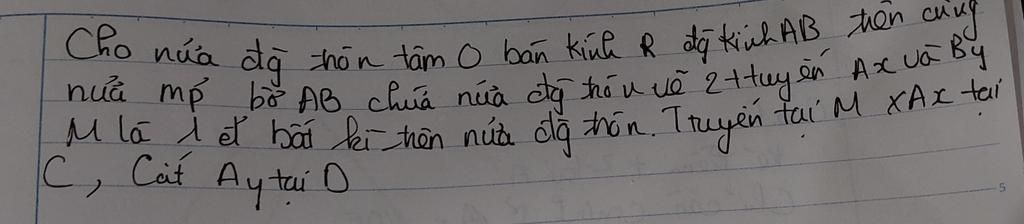 Cho nửa đg tròn tâm O bán kính R đg kính AB trên cùng
nửa mp bờ AB chứa nửa đg tròn vẽ 2 t tuyến Ax và By
M là 1 đ' bất kì trên nửa đg tròn. Tuyến tại M x Ax tại
C, Cắt Ay tại D